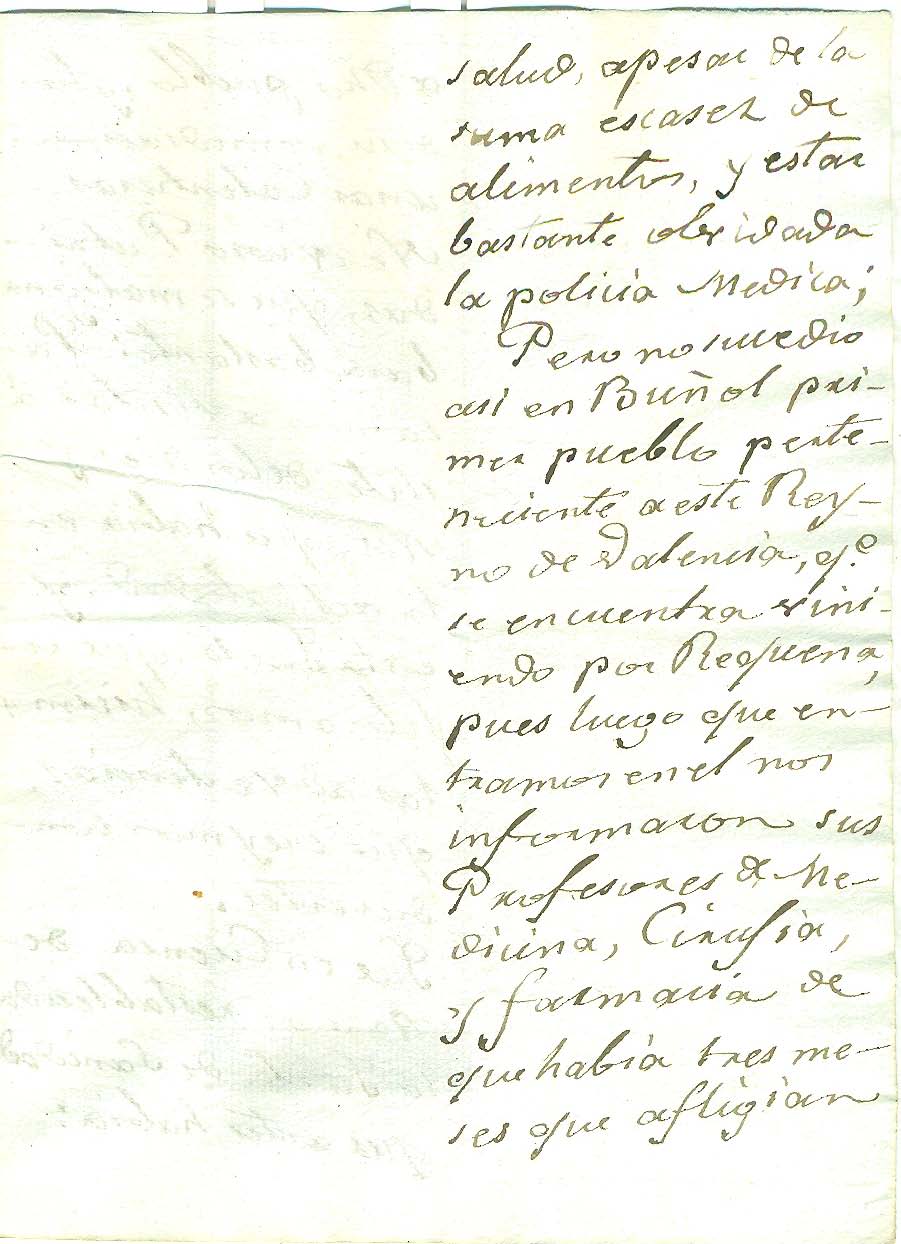 salud, apesar de la
suma escasez de
alimentos, y estar
bastante olvidada
la policia Medica;
Pero no sucedio
asi en Buñol pri-
mer pueblo perte-
neciente a este Rey-
no de Valencia, q.e
se encuentra vini-
endo por Requena,
pues luego que en-
tramos en el nos
informaron sus
Profesores de Me-
dicina, Cirujia,
y farmacia de
que habia tres me-
ses que afligian